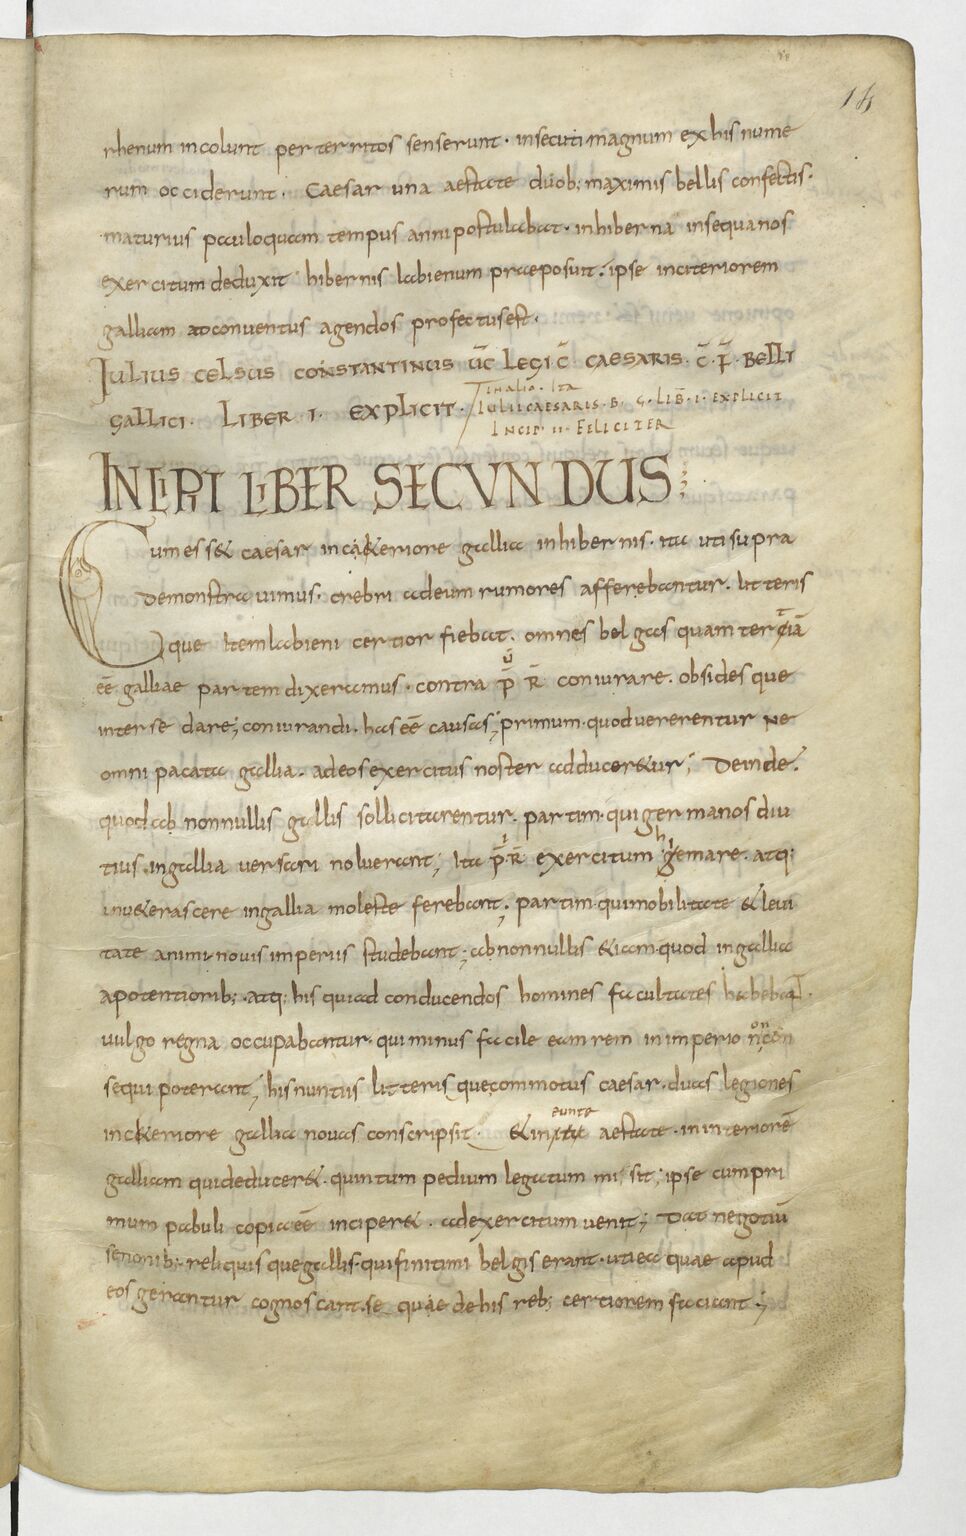 14
rhenum incolunt perterritos senserunt · insecuti magnum ex his nume
rum occiderunt · Caesar una aestate duob; maximis bellis confectis ·
maturius paulo quam tempus anni postulabat · in hiberna in sequanos
exercitum deduxit hibernis labienum praeposuit · ipse in citeriorem
galliam ad conventus agendos profectus est ·
IULIUS CELSUS CONSTANTINUS ūc LEGI c̄ CAESARIS · c̄ · p̄ · BELLI
GALLICI · LIBER I · EXPLICIT ·
IULII CAESARIS · B · G · LIB̄ · I · EXPLICIT
INCIP · II · FELICITER
INCIPIT LIBER SECUNDUS
Cum ess& caesar in citeriore gallia in hibernis · ita uti supra
demonstravimus · crebri ad eum rumores afferebantur · litteris
que item labieni certior fiebat · omnes belgas quam terciā
eē galliae partem dixeramus · contra p̄ R̄ coniurare · obsides que
inter se dare; coniurandi · has eē causas; primum · quod vererentur ne
omni pacata gallia · ad eos exercitus noster adducer&ur; Deinde ·
quod ab nonnullis gallis sollicitarentur · partim · qui germanos diu
tius in gallia versari noluerant; Ita p̄ · R̄ exercitum hiemare · atq;
inu&erascere in gallia moleste ferebant; partim · qui mobilitate & levi
tate animi novis imperiis studebant; ab nonnullis &iam · quod in gallia
a potentiorib; · atq; his qui ad conducendos homines facultates habebant ·
vulgo regna occupabantur · qui minus facile eam rem in imperio nōn con
sequi poterant; his nuntiis litteris que commotus caesar · duas legiones
in citeriore gallia novas conscripsit · & ineunte aestate · in interiorē
galliam qui deducer& · quintum pedium legatum misit; ipse cum pri
mum pabuli copia eē inciper& · ad exercitum venit; Dat negotiū
senonib; · reliquis que gallis · qui finitimi belgis erant · uti ea quae apud
eos gerantur cognoscant · se quae de his reb; certiorem faciant;